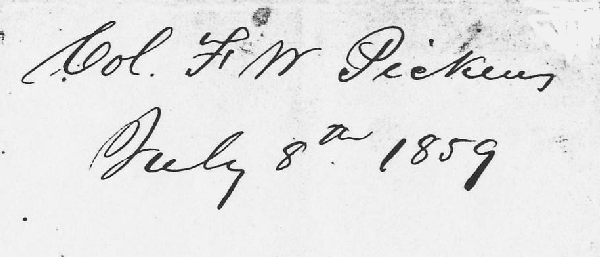 Col. F W Pickens
July 8th 1859